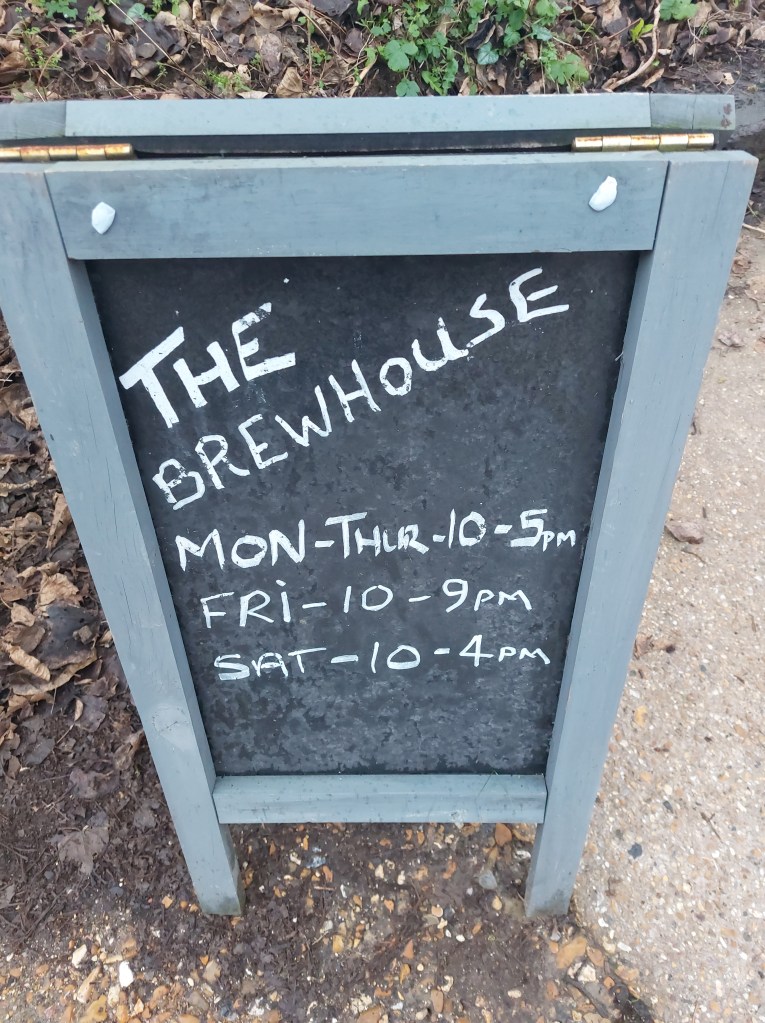 THE
BREWHOUSE
MON-THUR-10-5PM
FRI-10-9PM
SAT-10-4PM